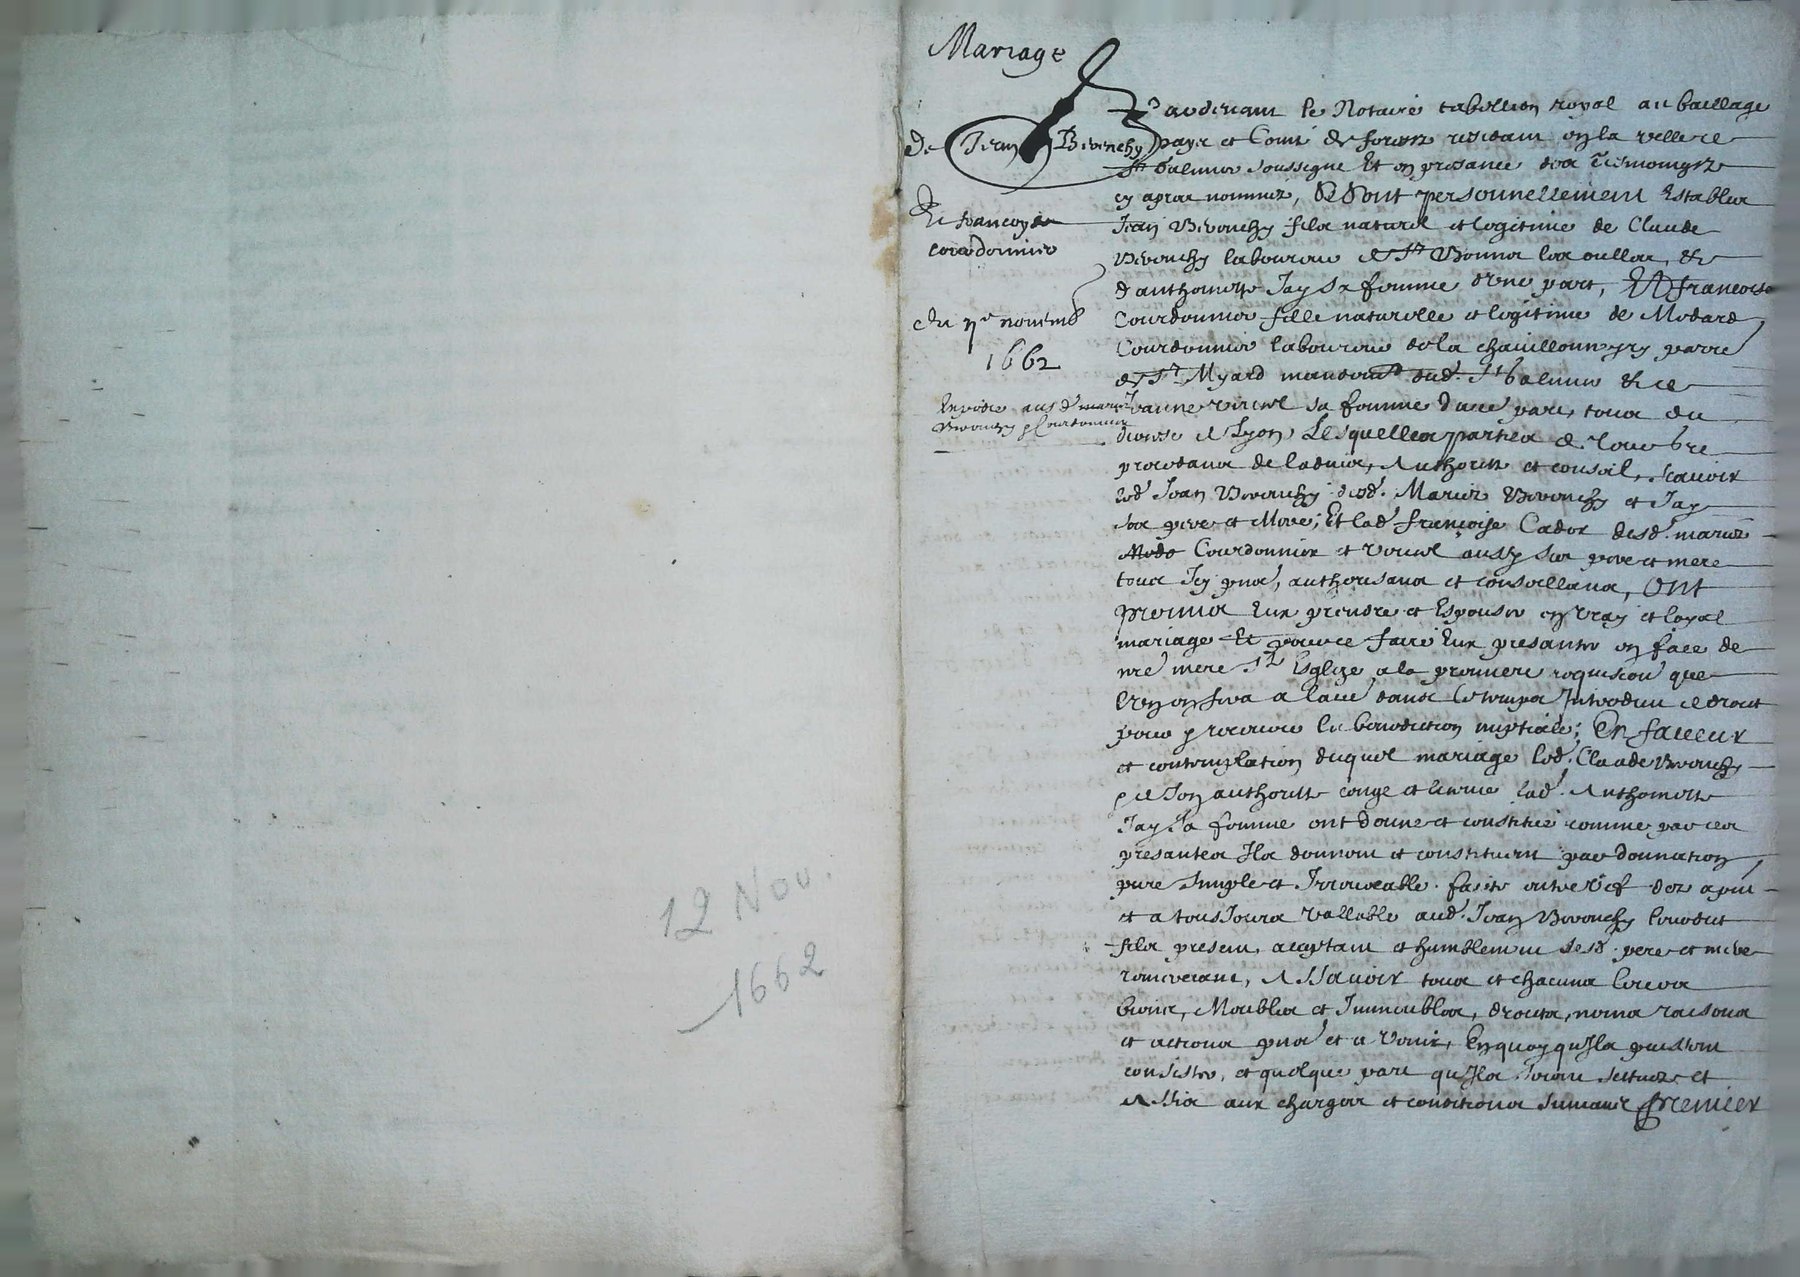 12 Nov.
1662
Mariage
de Jean Bevenchy
Et francoyse
courdonnier
du 12e novemb
1662
Par devant le Notaire tabellion royal au baillage
pays et Comté de forestz residant en la ville de
St Galmier soussigne Et en presance des tesmoingtz
cy apres nommez, Se sont personnellement Establis
Jean Bevenchy filz naturel et legitime de Claude
Bevenchy laboureur de St Bonnet les oulles, et de
d'anthoinette Jay sa femme d'une part, Et francoise
Courdonnier fille naturelle et legitime de Medard
Courdonnier laboureur de la chavillonnyery parre
de St Myard mandement dud. St Galmier et de
Jeanne sa femme d'autre part, tous du
diocese de Lyon Lesquelles parties de leur bre
procedans de l'advis, Authorite et conseil, scavoir
led Jean Bevenchy desd. Mariez Bevenchy et Jay
ses pere et Mere; Et lad francoise Cador desd. mariez
Courdonnier et aussy ses pere et mere
tous Icy pnts, authorisans et conseillans, Ont
promis Eux prendre et Espouser en vray et loyal
mariage Et pour ce faire Eux presanter en face de
nre mere Ste Esglize a la premiere requision que
l'ung en fera a l'autre dans le temps Introduit de droict
pour p recevoir la benediction nuptiale; En faveur
et contemplation duquel mariage led. Claude Bevenchy
p de son authorite conge et licence lad. Anthoinette
Jay sa femme ont donne et constitue comme par ces
presantes Ilz donnent et constituent par donnation
pure simple et Irrevocable faicte entre vifz des a pnt
et a tousjours vallable aud. Jean Bevenchy leurdict
filz present, acceptant et humblement sesd. pere et mere
remerciant, A Scavoir tous et chacuns leurs
biens, Meubles et Immeubles, droictz, noms raisons
et actions pnts et a venir, En quoy qu'Ilz puissent
consister, et quelque part qu'Ilz soient scituez et
Assis aux charges et conditions suivans Premier